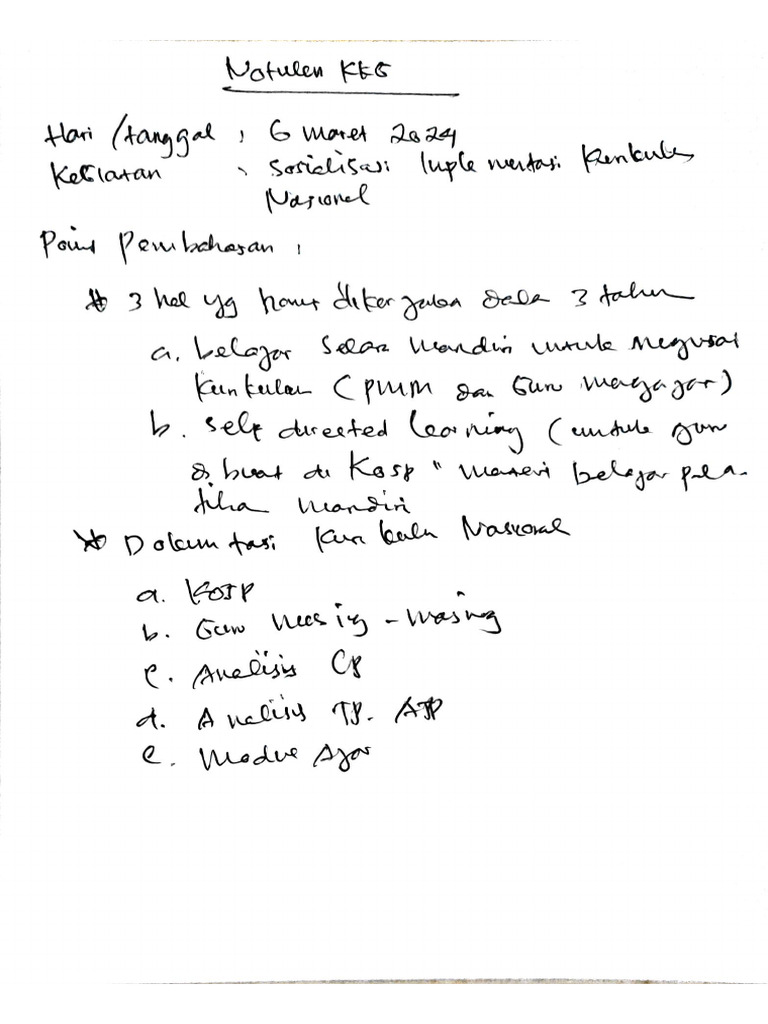 Notulen KKG
Hari / tanggal : 6 Maret 2024
Kegiatan : Sosialisasi Implementasi Kurikulum
Nasional
Point Pembahasan :
* 3 hal yg harus dikerjakan dalam 3 tahun
a. belajar secara Mandiri untuk Menguasai
kurikulum (PMM dan Guru Mengajar)
b. Self directed Learning (untuk guru
di buat di Kosp " Materi belajar pela-
tihan Mandiri
* Dokumentasi Kurikulum Nasional
a. KOSP
b. Guru Masing - Masing
c. Analisis CP
d. Analisis TP. ATP
e. Modul Ajar